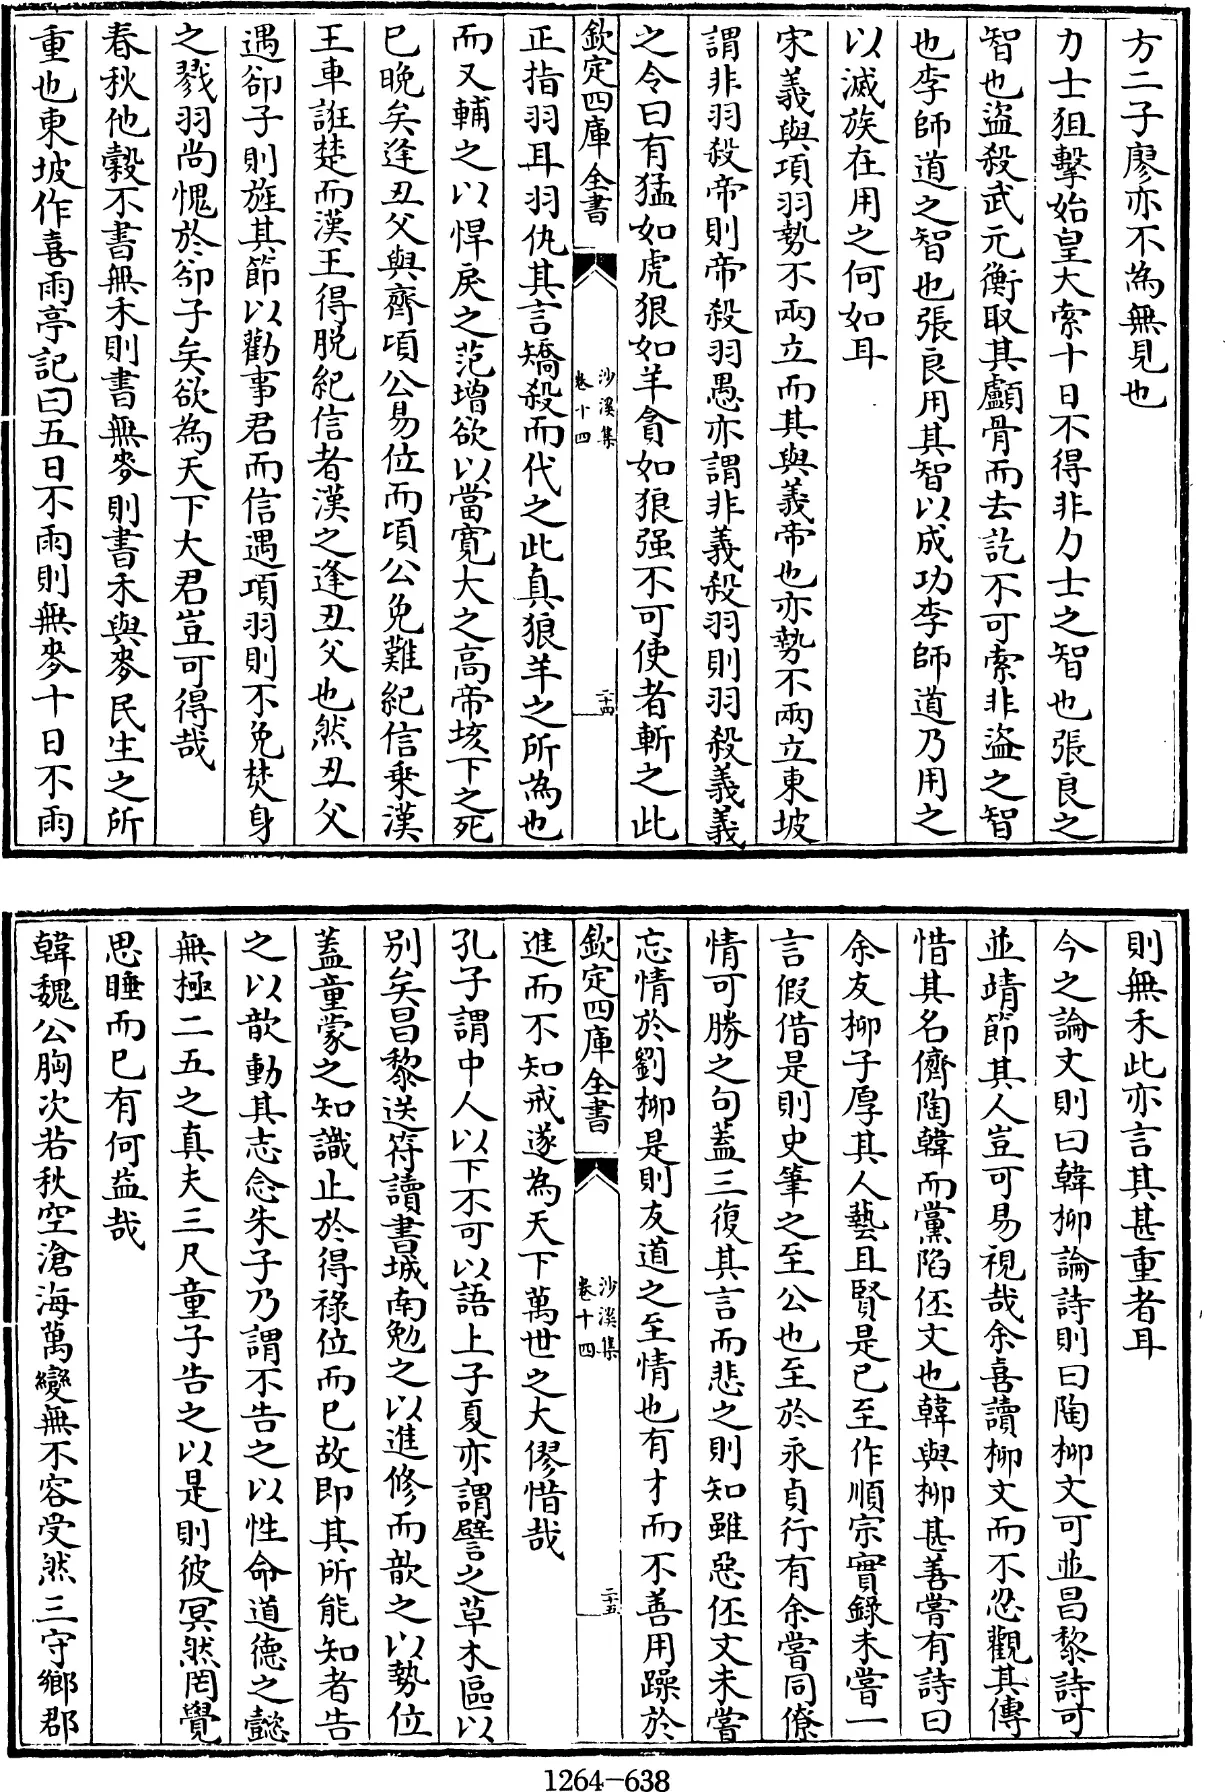 方二子廖亦不為無見也
力士狙擊始皇大索十日不得非力士之智也張良之
智也盜殺武元衡取其顱骨而去訖不可索非盜之智
也李師道之智也張良用其智以成功李師道乃用之
以滅族在用之何如耳
宋義與項羽勢不兩立而其與義帝也亦勢不兩立東坡
謂非羽殺帝則帝殺羽愚亦謂非義殺羽則羽殺義義
之令曰有猛如虎狠如羊貪如狼强不可使者斬之此
欽定四庫全書
沙溪集
卷十四
二十四
正指羽耳羽仇其言矯殺而代之此真狼羊之所為也
而又輔之以悍戾之范增欲以當寛大之高帝垓下之死
已晚矣逢丑父與齊頃公易位而頃公免難紀信乗漢
王車誑楚而漢王得脱紀信者漢之逢丑父也然丑父
遇郤子則旌其節以勸事君而信遇項羽則不免焚身
之戮羽尚愧於郤子矣欲為天下大君豈可得哉
春秋他穀不書無禾則書無麥則書禾與麥民生之所
重也東坡作喜雨亭記曰五日不雨則無麥十日不雨
則無禾此亦言其甚重者耳
今之論文則曰韓柳論詩則曰陶柳文可並昌黎詩可
並靖節其人豈可易視哉余喜讀柳文而不忍觀其傳
惜其名儕陶韓而黨陷伾文也韓與柳甚善嘗有詩曰
余友柳子厚其人藝且賢是已至作順宗實錄未嘗一
言假借是則史筆之至公也至於永貞行有余嘗同僚
情可勝之句蓋三復其言而悲之則知雖惡伾文未嘗
忘情於劉柳是則友道之至情也有才而不善用躁於
欽定四庫全書
沙溪集
卷十四
二十五
進而不知戒遂為天下萬世之大僇惜哉
孔子謂中人以下不可以語上子夏亦謂譬之草木區以
别矣昌黎送符讀書城南勉之以進修而歆之以勢位
蓋童蒙之知識止於得祿位而已故即其所能知者告
之以歆動其志念朱子乃謂不告之以性命道德之懿
無極二五之真夫三尺童子告之以是則彼冥然罔覺
思睡而已有何益哉
韓魏公胸次若秋空滄海萬變無不容受然三守鄉郡
1264-638